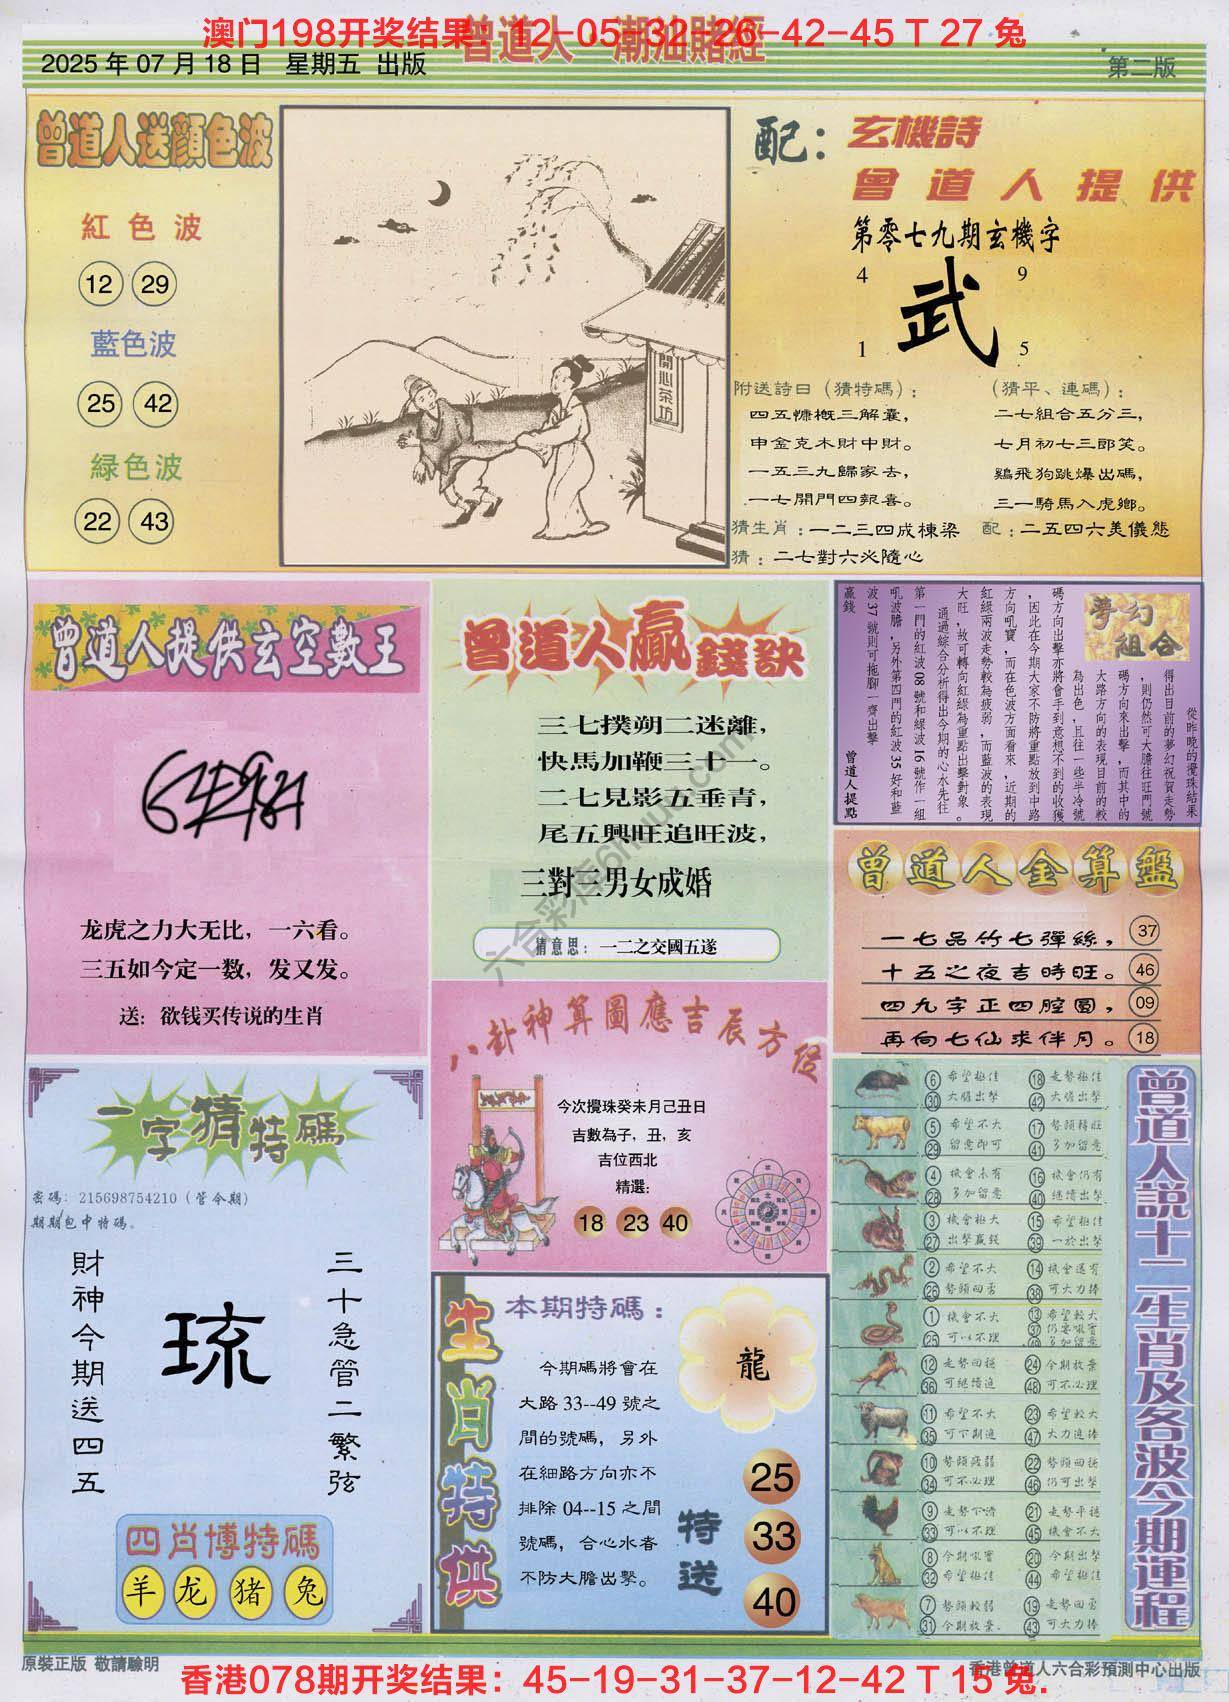 澳门198开奖结果：12-05-32-26-42-45 T 27 兔
曾道人·潮汕賭經
2025 年 07 月 18 日 星期五 出版
第二版
曾道人送顏色波
紅色波
12 29
藍色波
25 42
緑色波
22 43
開心茶坊
配：玄機詩
曾道人提供
第零七九期玄機字
4 9
武
1 5
附送詩曰（猜特碼）：
四五慷概三解囊，
申金克木財中財。
一五三九歸家去，
一七開門四報喜。
（猜平、連碼）：
二七組合五分三，
七月初七三郎笑。
鷄飛狗跳爆出碼，
三一騎馬入虎鄉。
猜生肖：一二三四成棟梁
配：二五四六美儀態
猜：二七對六必隨心
曾道人提供玄空數王
龙虎之力大无比，一六看。
三五如今定一数，发又发。
送：欲钱买传说的生肖
曾道人贏錢訣
三七撲朔二迷離，
快馬加鞭三十一。
二七見影五垂青，
尾五興旺追旺波，
三對二男女成婚
猜意思：一二之交國五遂
夢幻組合
從昨晚的攪珠結果
得出目前的夢幻祝賀走勢
，則仍然可大膽往旺門號
碼方向來出擊，而其中的
大路方向的表現目前的較
為出色，且往一些半冷號
碼方向出擊亦將會手到意想不到的收獲
，因此在今期大家不防將重點放到中路
方向吼寶，而在色波方面看來，近期的
紅綠兩波走勢較為疲弱，而藍波的表現
大旺，故可轉向紅綠為重點出擊對象。
通過綜合分析得出今期的心水先往
第一門的紅波 08 號和緑波 16 號作一組
吼波膽，另外第四門的紅波 35 好和藍
波 37 號則可拖腳一齊出擊
贏錢
曾道人提點
曾道人金算盤
一七品竹七彈絲，37
十五之夜吉時旺。46
四九字正四腔圓，09
再向七仙求伴月。18
八卦神算圖應吉辰方位
今次攪珠癸未月己丑日
吉數為子，丑，亥
吉位西北
精選:
18 23 40
一字猜特碼
密碼: 215698754210（管今期）
期期包中特碼。
財神今期送四五
琉
三十急管二繁弦
四肖博特碼
羊 龙 猪 兔
生肖特供
本期特碼：
龍
今期碼將會在
大路 33--49 號之
間的號碼，另外
在細路方向亦不
排除 04--15 之間
號碼，合心水者
不防大膽出擊。
特送
25
33
40
曾道人説十二生肖及各波今期運程
6 希望極佳 18 走勢極佳
30 大膽出擊 42 大膽出擊
5 希望不大 17 勢頭轉旺
29 留意即可 41 多加留意
4 機會未有 16 機會仍有
28 多加留意 40 繼續出擊
3 機會極大 15 希望極佳
27 出擊贏錢 39 一於出擊
2 希望不大 14 機會還有
26 勢頭回落 38 可大力捧
1 機會不大 13 希望較大
25 可以不理 37
49 多加留意
12 走勢回穩 24 今期放棄
36 可繼續追 48 可不必理
11 希望不大 23 希望較大
35 可下期追 47 大力追捧
10 勢頭疲弱 22 勢頭回穩
34 可不必理 46 仍可出擊
9 走勢下滑 21 走勢平穩
33 可以不理 45 機會不大
8 今期吼實 20 今期出擊
32 希望極佳 44 希望極佳
7 勢頭較弱 19 走勢回落
31 今期放棄. 43 可大力捧
原裝正版 敬請驗明
香港曾道人六合彩預測中心出版
香港078期开奖结果：45-19-31-37-12-42 T 15 兔.